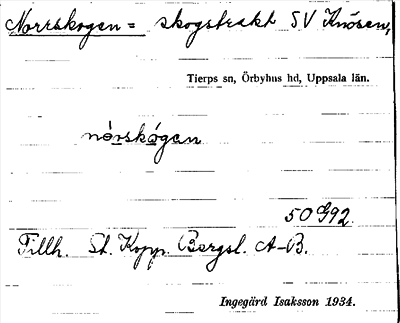 Norrskogen = skogstrakt SV Knösen,
Tierps sn, Örbyhus hd, Uppsala län.
nórskógen
50 G 92.
Tillh. St. Kopp. Bergsl. A-B.
Ingegärd Isaksson 1934.